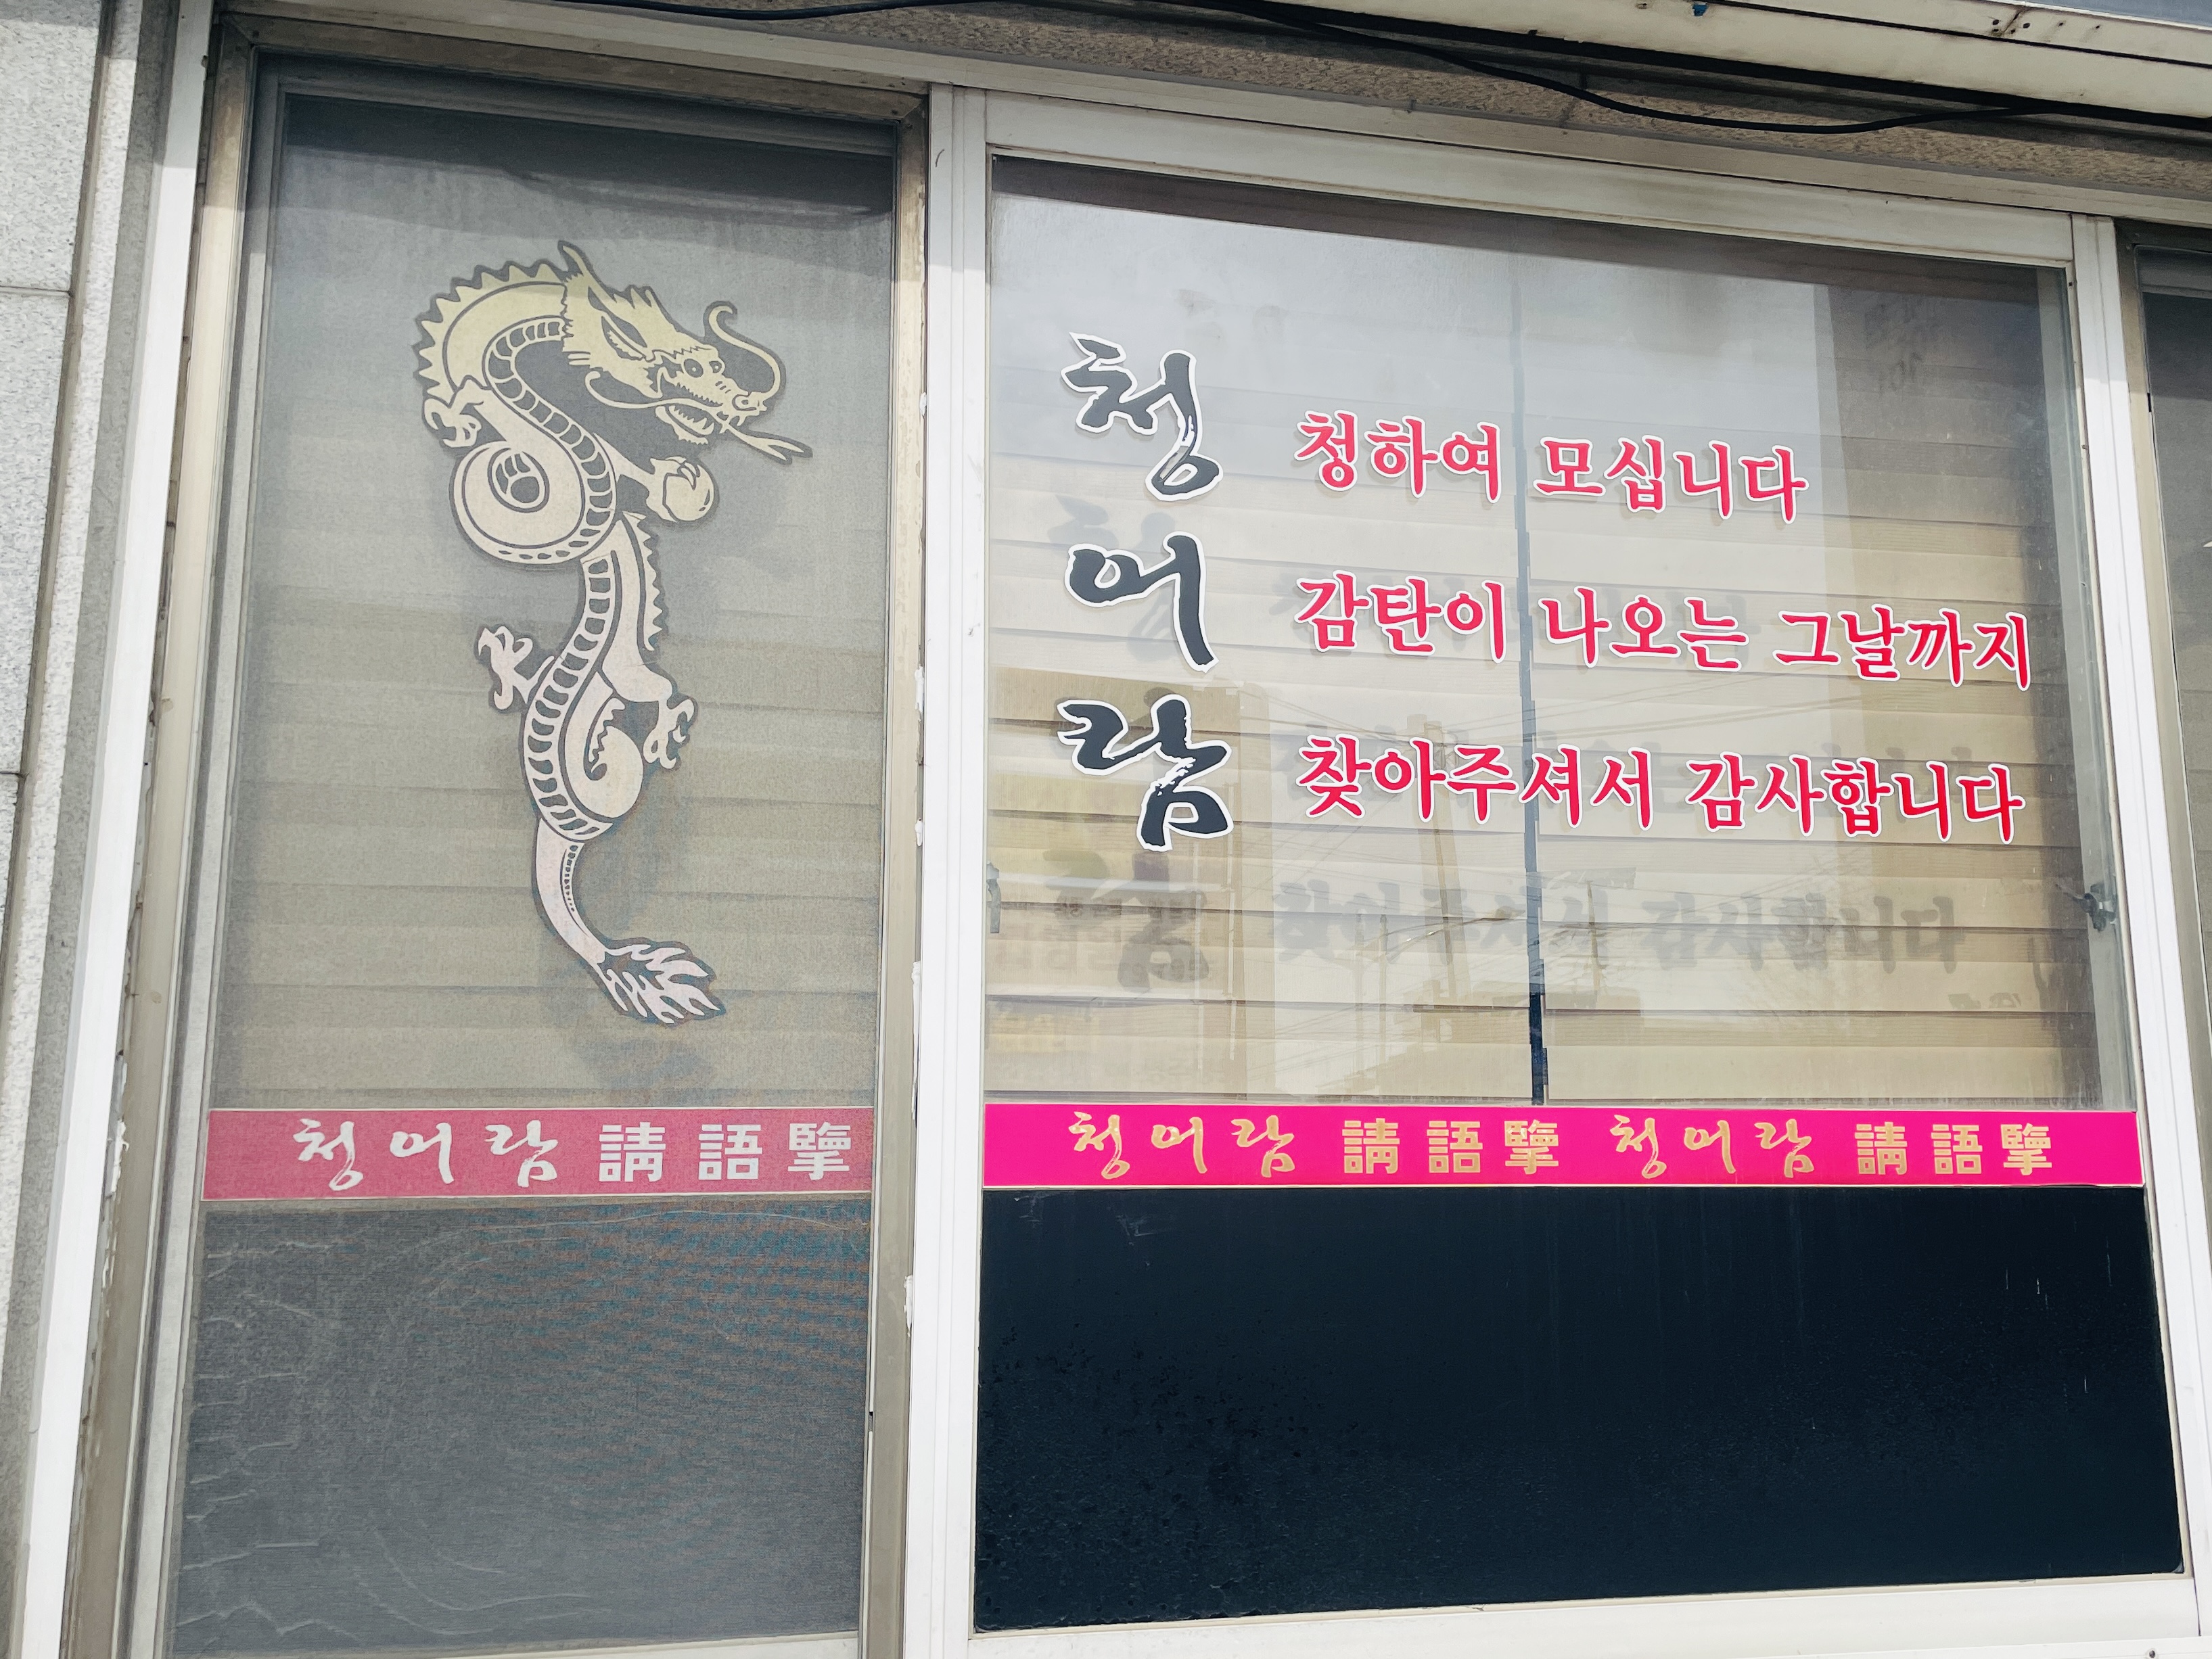 청어람
청하여 모십니다
감탄이 나오는 그날까지
찾아주셔서 감사합니다
청어람 請語擥
청어람 請語擥 청어람 請語擥